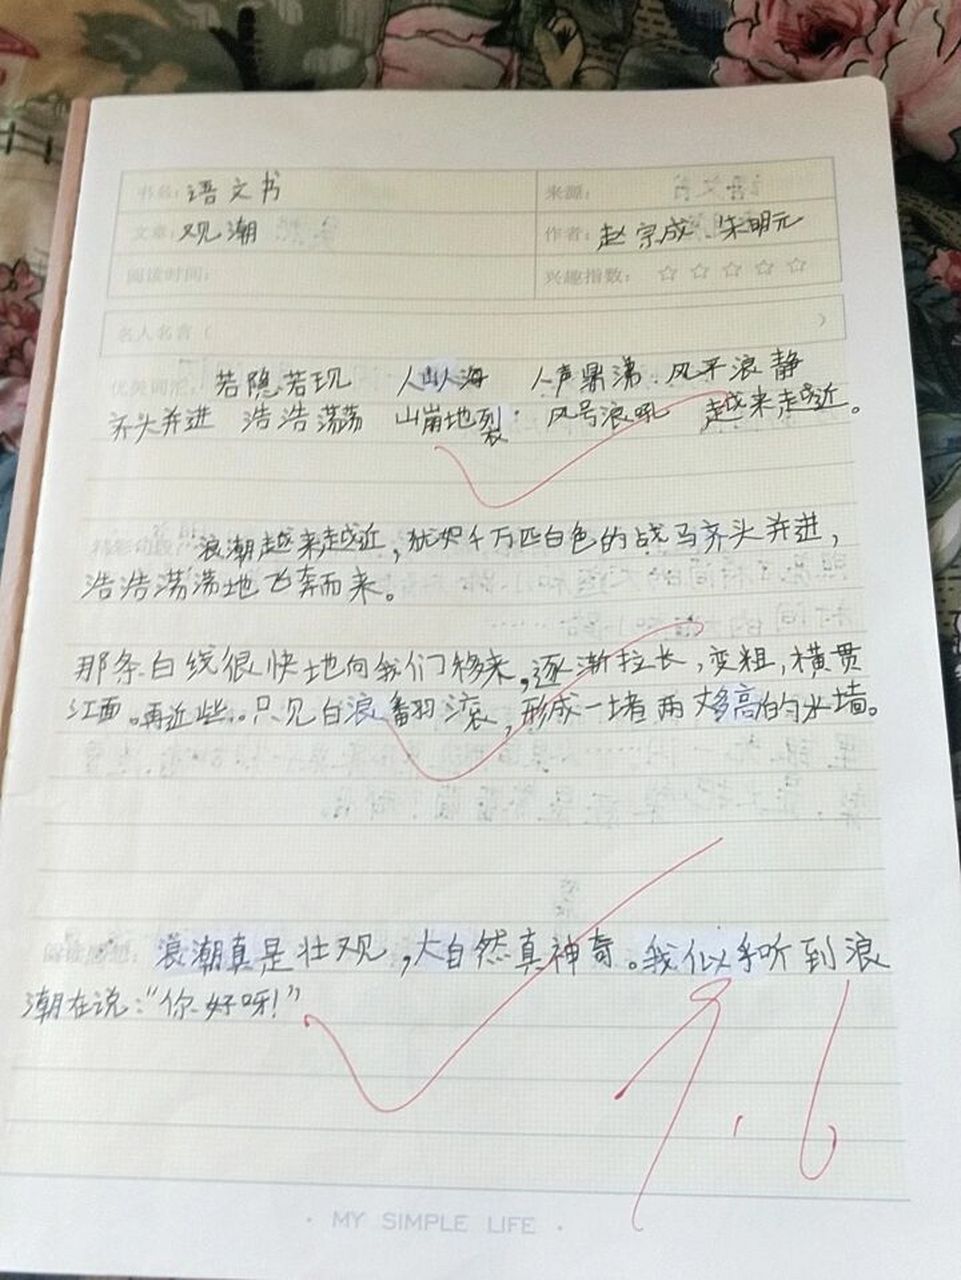 书名：语文书 来源：
文章：观潮 作者：赵宗成 朱明元
阅读时间： 兴趣指数：☆☆☆☆☆
名人名言（ ）
优美词汇： 若隐若现 人山人海 人声鼎沸 风平浪静
齐头并进 浩浩荡荡 山崩地裂 风号浪吼 越来越近。
精彩句段：浪潮越来越近，犹如千万匹白色的战马齐头并进，
浩浩荡荡地飞奔而来。
那条白线很快地向我们移来，逐渐拉长，变粗，横贯
江面。再近些，只见白浪翻滚，形成一堵两丈多高的水墙。
阅读感想：浪潮真是壮观，大自然真神奇。我似乎听到浪
潮在说：“你好呀！”
9.6
· MY SIMPLE LIFE ·